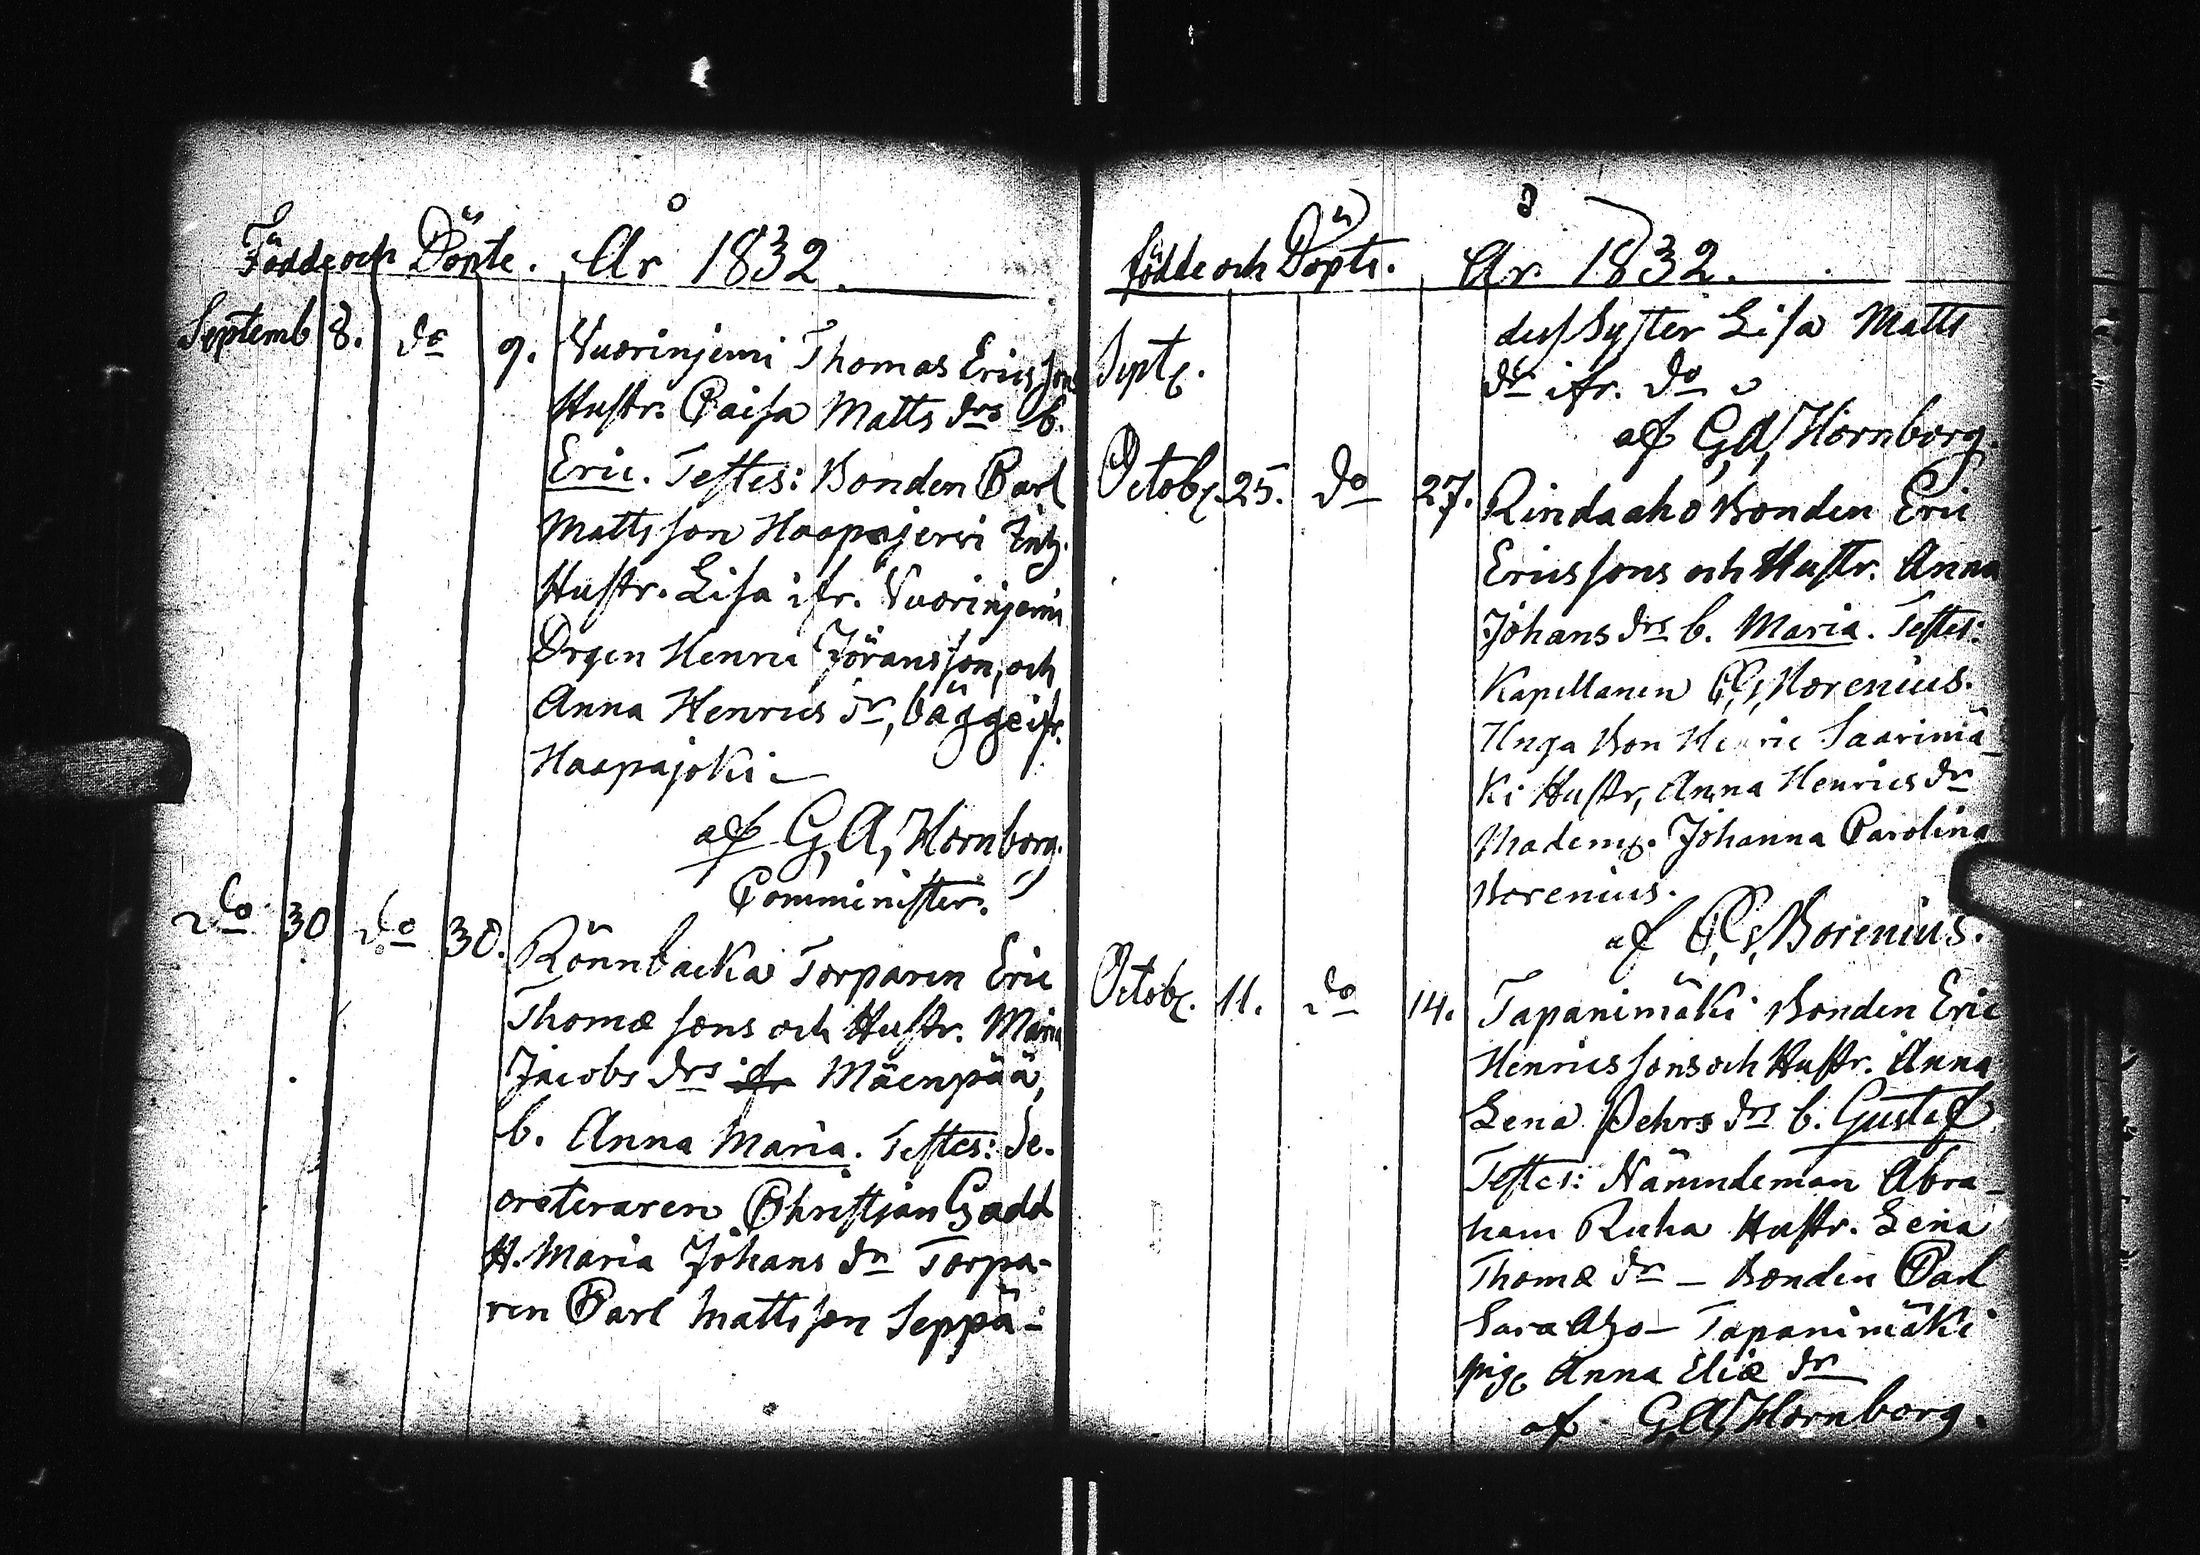 Födde och Döpte. År 1832.
Septemb 8. do 9. Vuorinjemi Thomas Ericssons
Hustr. Caisa Matts drs b.
Eric. Testes: Bonden Carl
Mattsson Haapajerwi
Hustr. Lisa ifr. Vuorinjemi
Drgen Henric Jöransson, och
Anna Henrics dr, bägge ifr.
Haapajoki
af G, A, Hornborg.
Comminister.
do 30 do 30. Rönnbacka Torparen Eric
Thomæ sons och Hustr. Maria
Jacobs drs ifr Mäenpää,
b. Anna Maria. Testes: Se-
creteraren Christian Gadd
H. Maria Johans dr Torpa-
ren Carl Mattsson Seppä-
födde och Döpte. År 1832.
Sept. dess Syster Lisa Matts
dr ifr. do
af G, A, Hornborg.
Octobr. 25. do 27. Rindaaho Bonden Eric
Ericssons och Hustr. Anna
Johans drs b. Maria. Testes:
Kapellanen C, G, Borenius.
Unga Bon Henric Saarimä-
ki Hustr, Anna Henrics dr
Madem. Johanna Carolina
Borenius.
af C, G, Borenius.
Octobr. 11. do 14. Tapanimäki Bonden Eric
Henrics sons och Hustr. Anna
Lena Pehrs drs b. Gustaf
Testes: Nämndeman Abra-
ham Ruha Hustr. Lena
Thomæ dr - Bonden Carl
Sara Aho - Tapanimäki
pig. Anna Eliæ dr
af G, A, Hornborg.